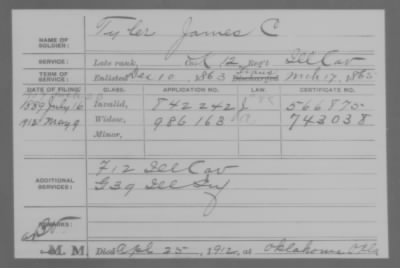 NAME OF SOLDIER: Tyler James C
SERVICE: Late rank, Co. M, 12 Reg't Ill Cav
TERM OF SERVICE: Enlisted Dec 10, 1863 Discharged Mch 17, 1865
DATE OF FILING. CLASS. APPLICATION NO. LAW. CERTIFICATE NO.
1889 July 16 Invalid, 842242 566875
1912 May 9 Widow, 986163 743038
Minor,
ADDITIONAL SERVICES: F 12 Ill Cav
G 39 Ill Inf
REMARKS:
M. M. Died Apl 25, 1912, at Oklahoma Okla